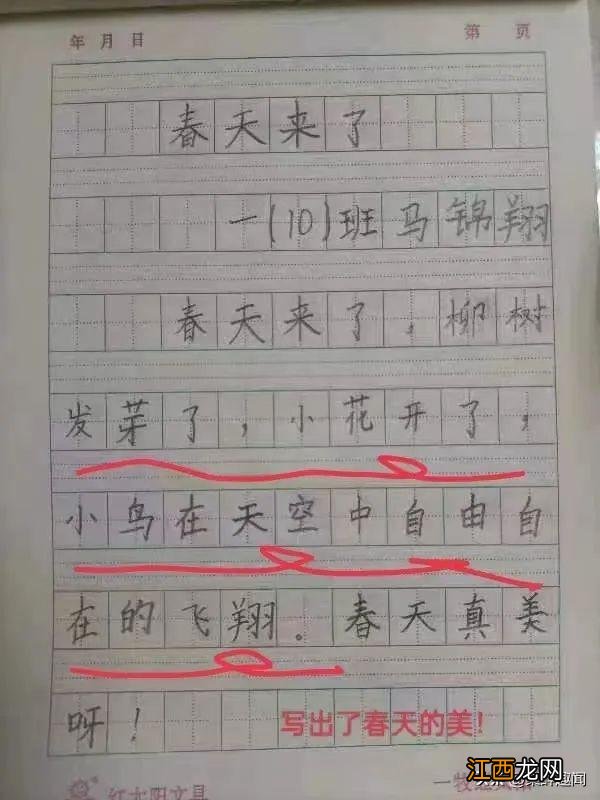 年 月 日 第 页
春天来了
一(10)班马锦翔
春天来了,柳树
发芽了,小花开了,
小鸟在天空中自由自
在的飞翔。春天真美
呀!
写出了春天的美!
红太阳文具
江西龙网